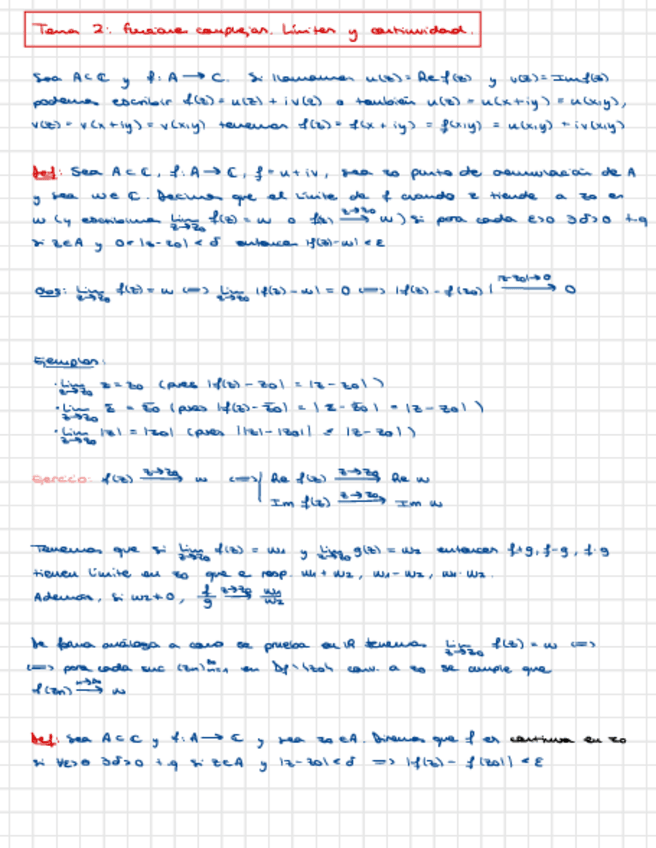 Tema 2: Funciones complejas. Límites y continuidad.
Sea A⊂ℂ y f: A→ℂ. Si llamamos u(z)=Re f(z) y v(z)=Im f(z)
podemos escribir f(z)=u(z)+iv(z) o también u(z)=u(x+iy)=u(x,y),
v(z)=v(x+iy)=v(x,y) tenemos f(z)=f(x+iy)=f(x,y)=u(x,y)+iv(x,y)
Def: Sea A⊂ℂ, f: A→ℂ, f=u+iv, sea z₀ punto de acumulación de A
y sea w∈ℂ. Decimos que el límite de f cuando z tiende a z₀ es
w (y escribimos lim_{z→z₀} f(z)=w o f(z) →^{z→z₀} w) si para cada ε>0 ∃δ>0 t.q
si z∈A y 0<|z-z₀|<δ entonces |f(z)-w|<ε
Obs: lim_{z→z₀} f(z)=w ⟺ lim_{z→z₀} |f(z)-w|=0 ⟺ |f(z)-f(z₀)| →^{|z-z₀|→0} 0
Ejemplos:
· lim_{z→z₀} z=z₀ (pues |f(z)-z₀|=|z-z₀|)
· lim_{z→z₀} z̄=z̄₀ (pues |f(z)-z̄₀|=|z̄-z̄₀|=|z-z₀|)
· lim_{z→z₀} |z|=|z₀| (pues ||z|-|z₀||≤|z-z₀|)
Ejercicio: f(z) →^{z→z₀} w ⟺ | Re f(z) →^{z→z₀} Re w
Im f(z) →^{z→z₀} Im w
Tenemos que si lim_{z→z₀} f(z)=w₁ y lim_{z→z₀} g(z)=w₂ entonces f+g, f-g, f·g
tienen límite en z₀ que es resp. w₁+w₂, w₁-w₂, w₁·w₂.
Además, si w₂≠0, f/g →^{z→z₀} w₁/w₂
De forma análoga a como se prueba en ℝ tenemos lim_{z→z₀} f(z)=w ⟺
⟺ para cada suc (zn)^∞_{n=1} en Df\{z₀} conv. a z₀ se cumple que
f(zn) →^{n→∞} w
Def: Sea A⊂ℂ y f: A→ℂ y sea z₀∈A. Diremos que f es continua en z₀
si ∀ε>0 ∃δ>0 t.q si z∈A y |z-z₀|<δ ⟹ |f(z)-f(z₀)|<ε